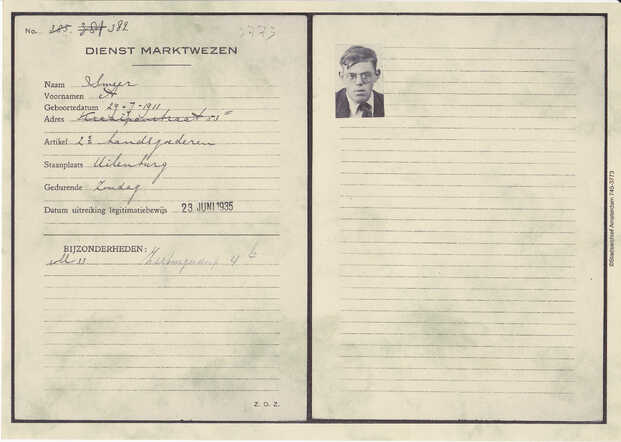 No. 385. 381 382
3773
DIENST MARKTWEZEN
Naam
Voornamen A
Geboortedatum 29-7-1911
Adres
Artikel 2e handsgoederen
Staanplaats Uilenburg
Gedurende Zondag
Datum uitreiking legitimatiebewijs 23 JUNI 1935
BIJZONDERHEDEN:
Z. O. Z.
©Stadsarchief Amsterdam 745-3773